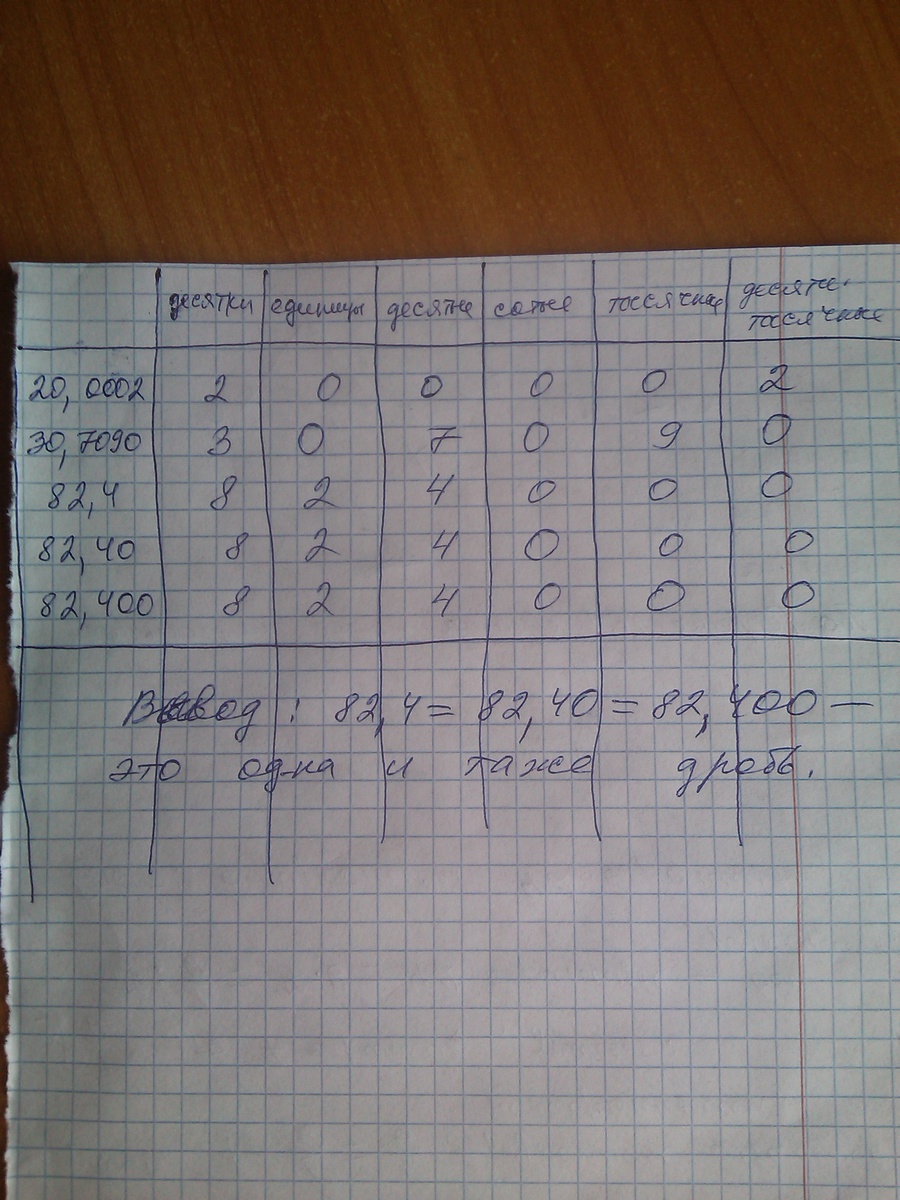 десятки единицы десятые сотые тысячные десяти-
тысячные
20,0002 2 0 0 0 0 2
30,7090 3 0 7 0 9 0
82,4 8 2 4 0 0 0
82,40 8 2 4 0 0 0
82,400 8 2 4 0 0 0
Вывод : 82,4 = 82,40 = 82,400 —
это одна и таже дробь.